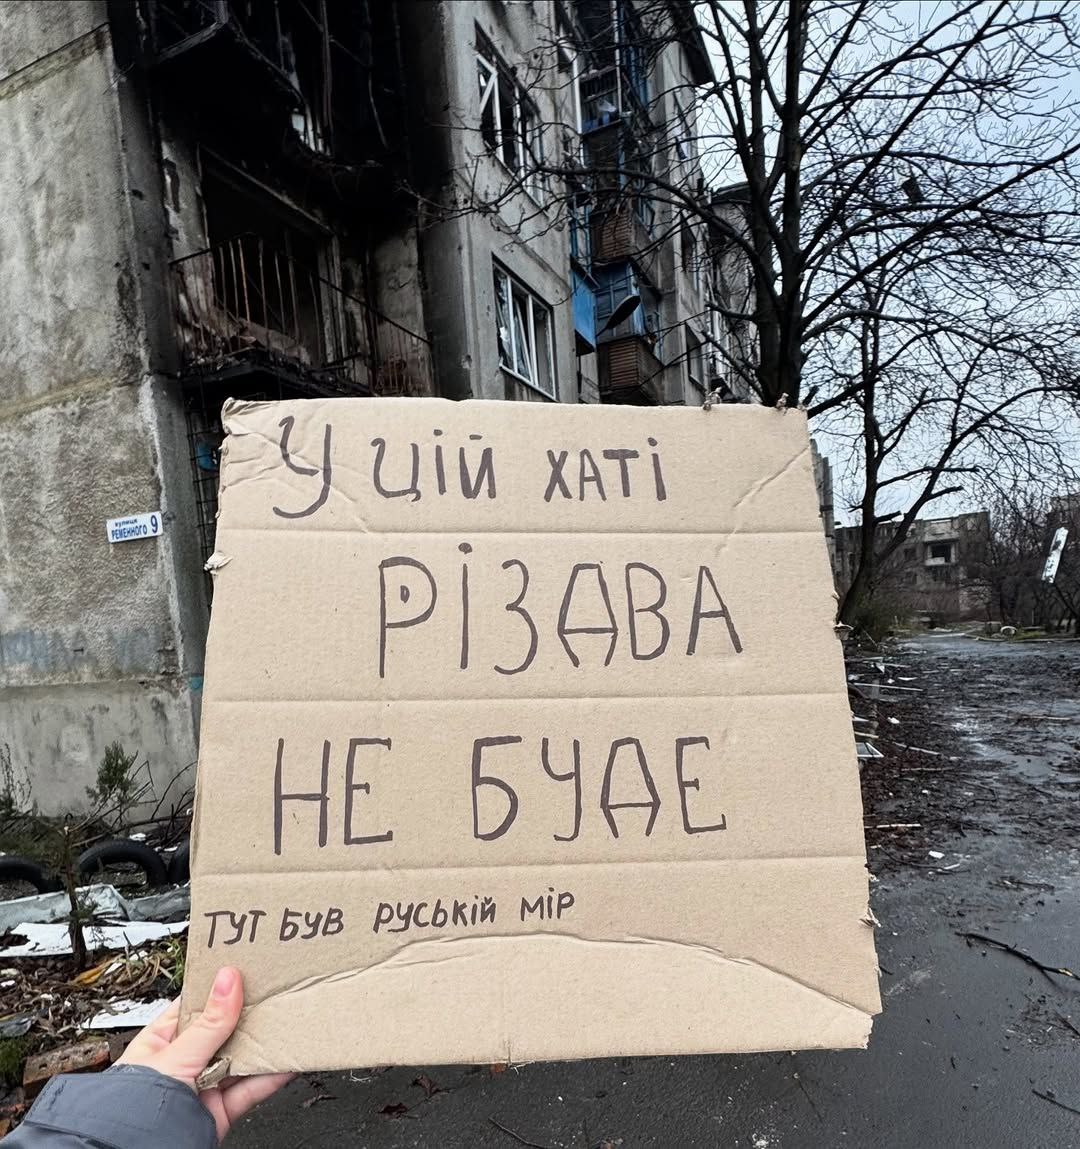 У ЦІЙ ХАТІ
РІЗДВА
НЕ БУДЕ
ТУТ БУВ РУСЬКІЙ МІР
вулиця
РЕМЕННОГО 9